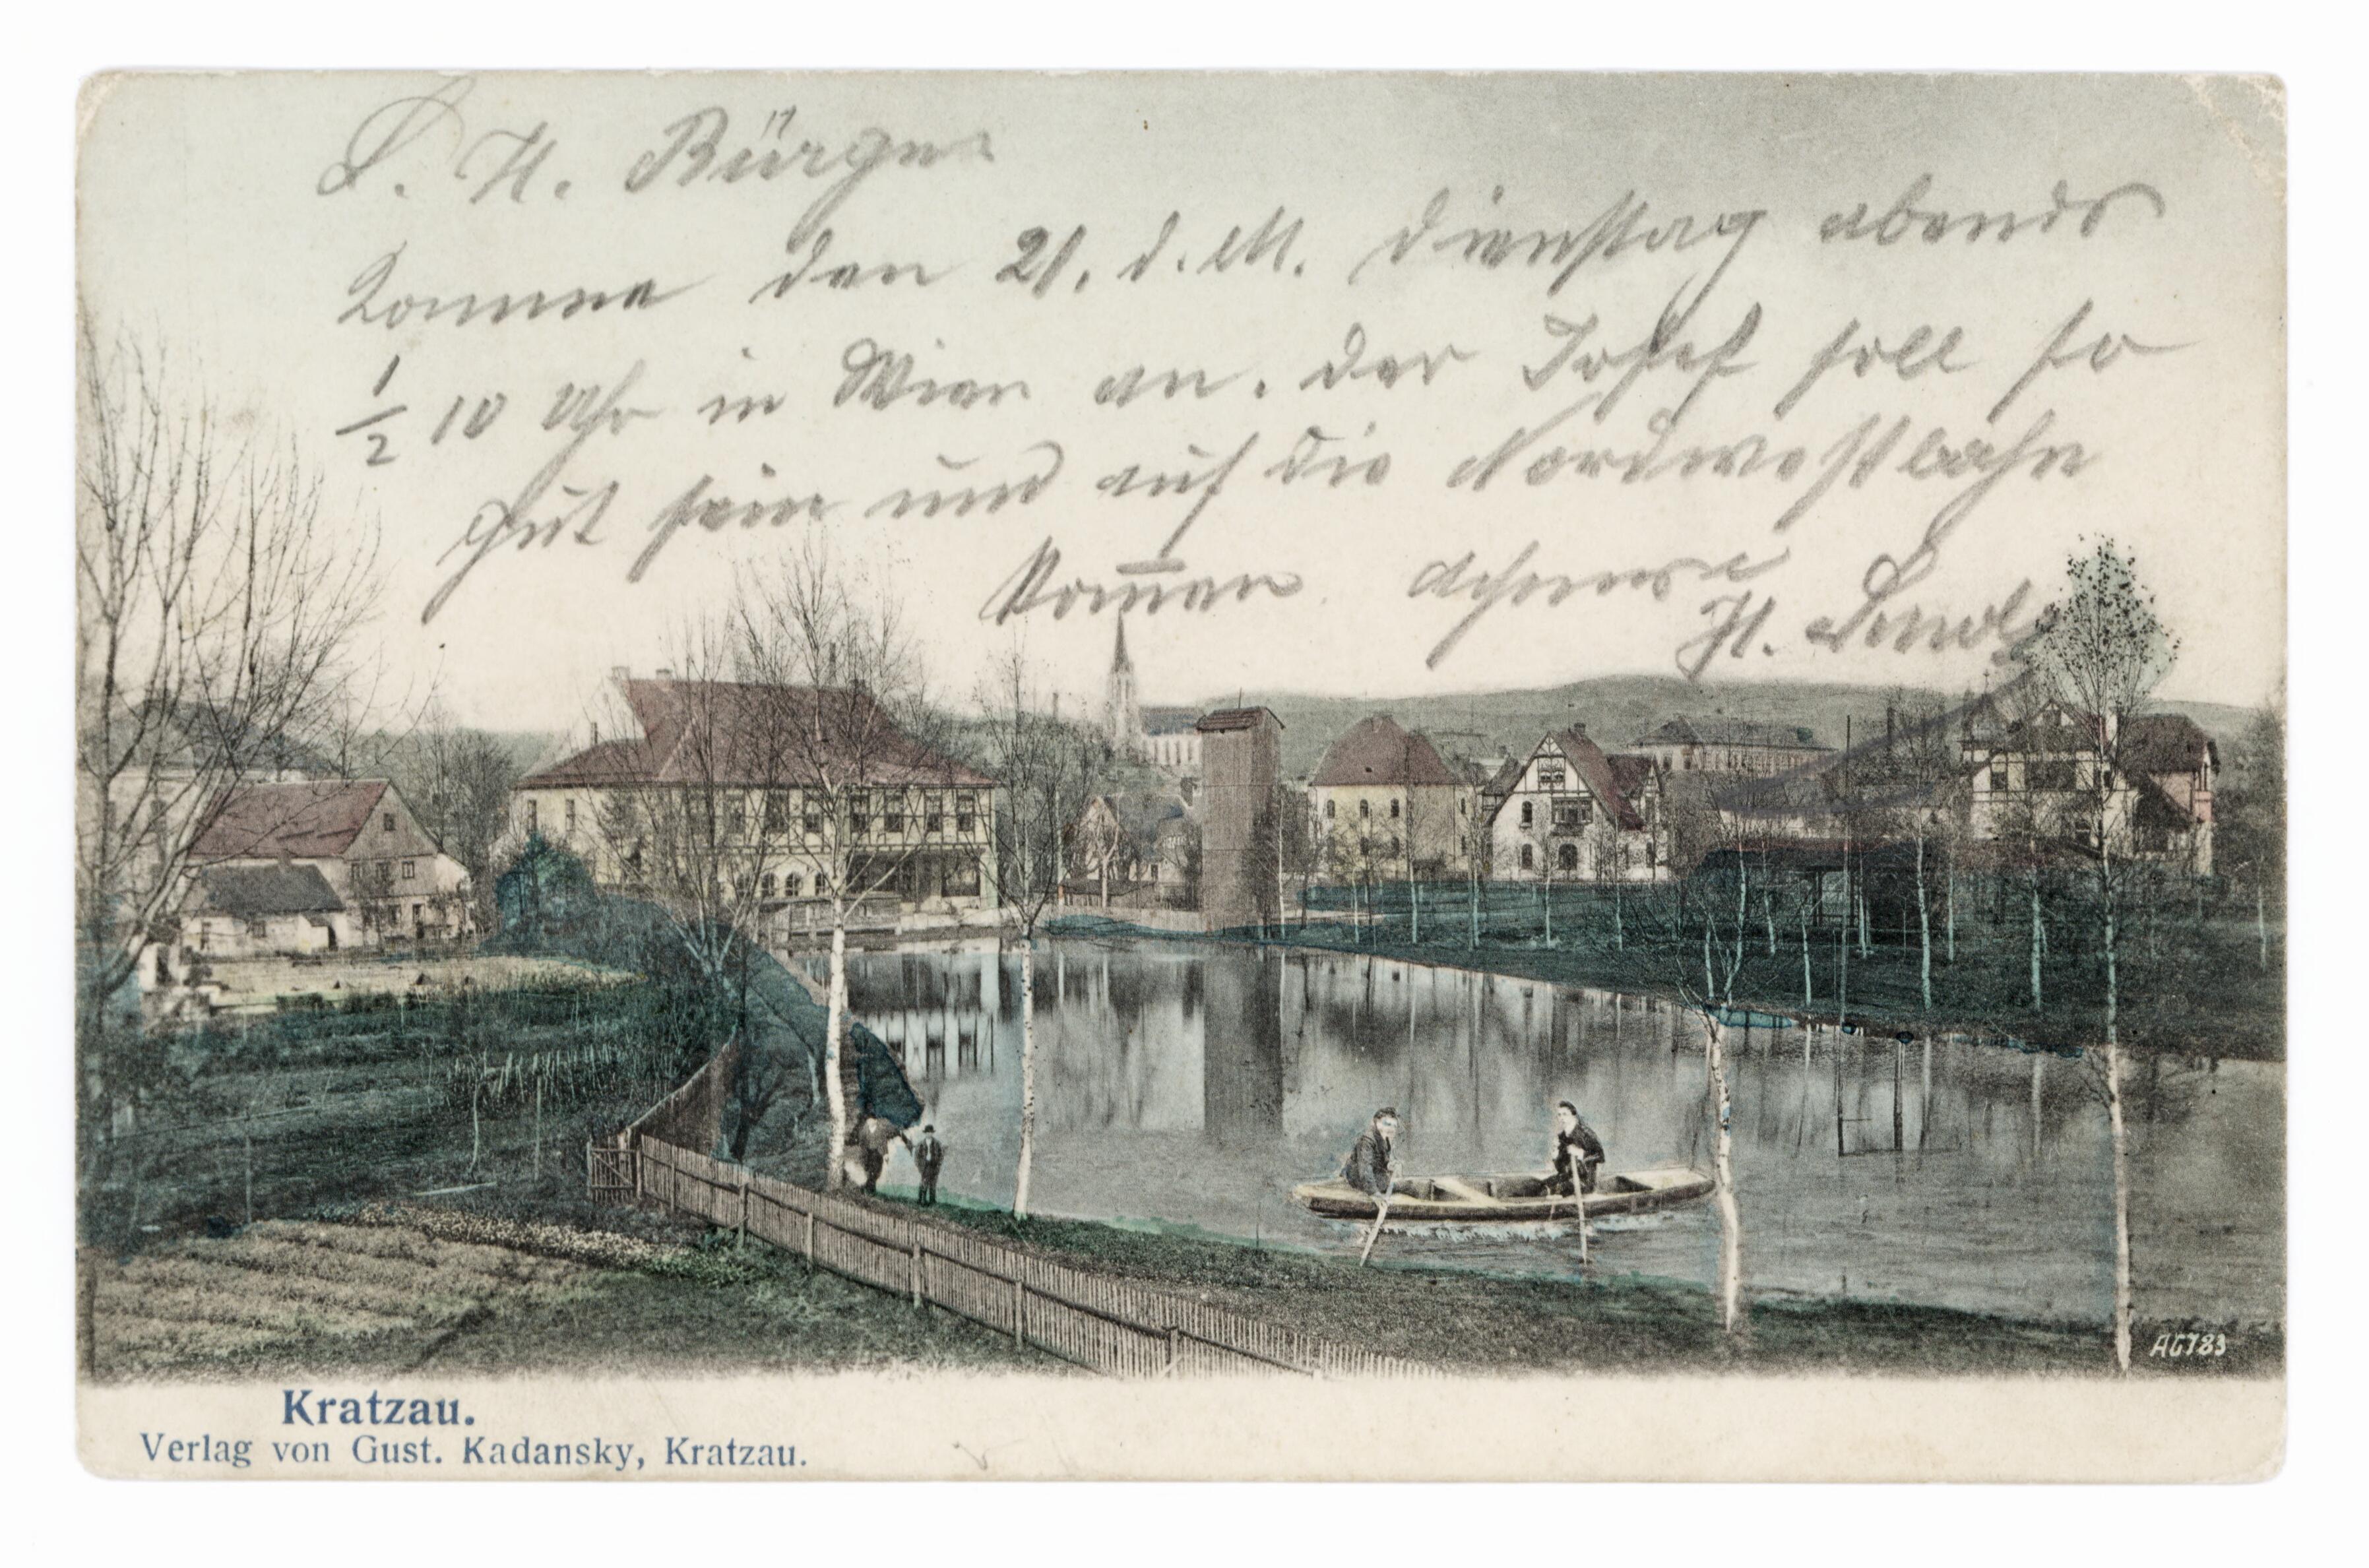 L. H. Bürger
Komme den 21. d. M. Dienstag abends
½ 10 Uhr in Wien an. der Josef soll so
gut sein und auf die Nordwestbahn
kom̄en.
H.
AG 783
Kratzau.
Verlag von Gust. Kadansky, Kratzau.